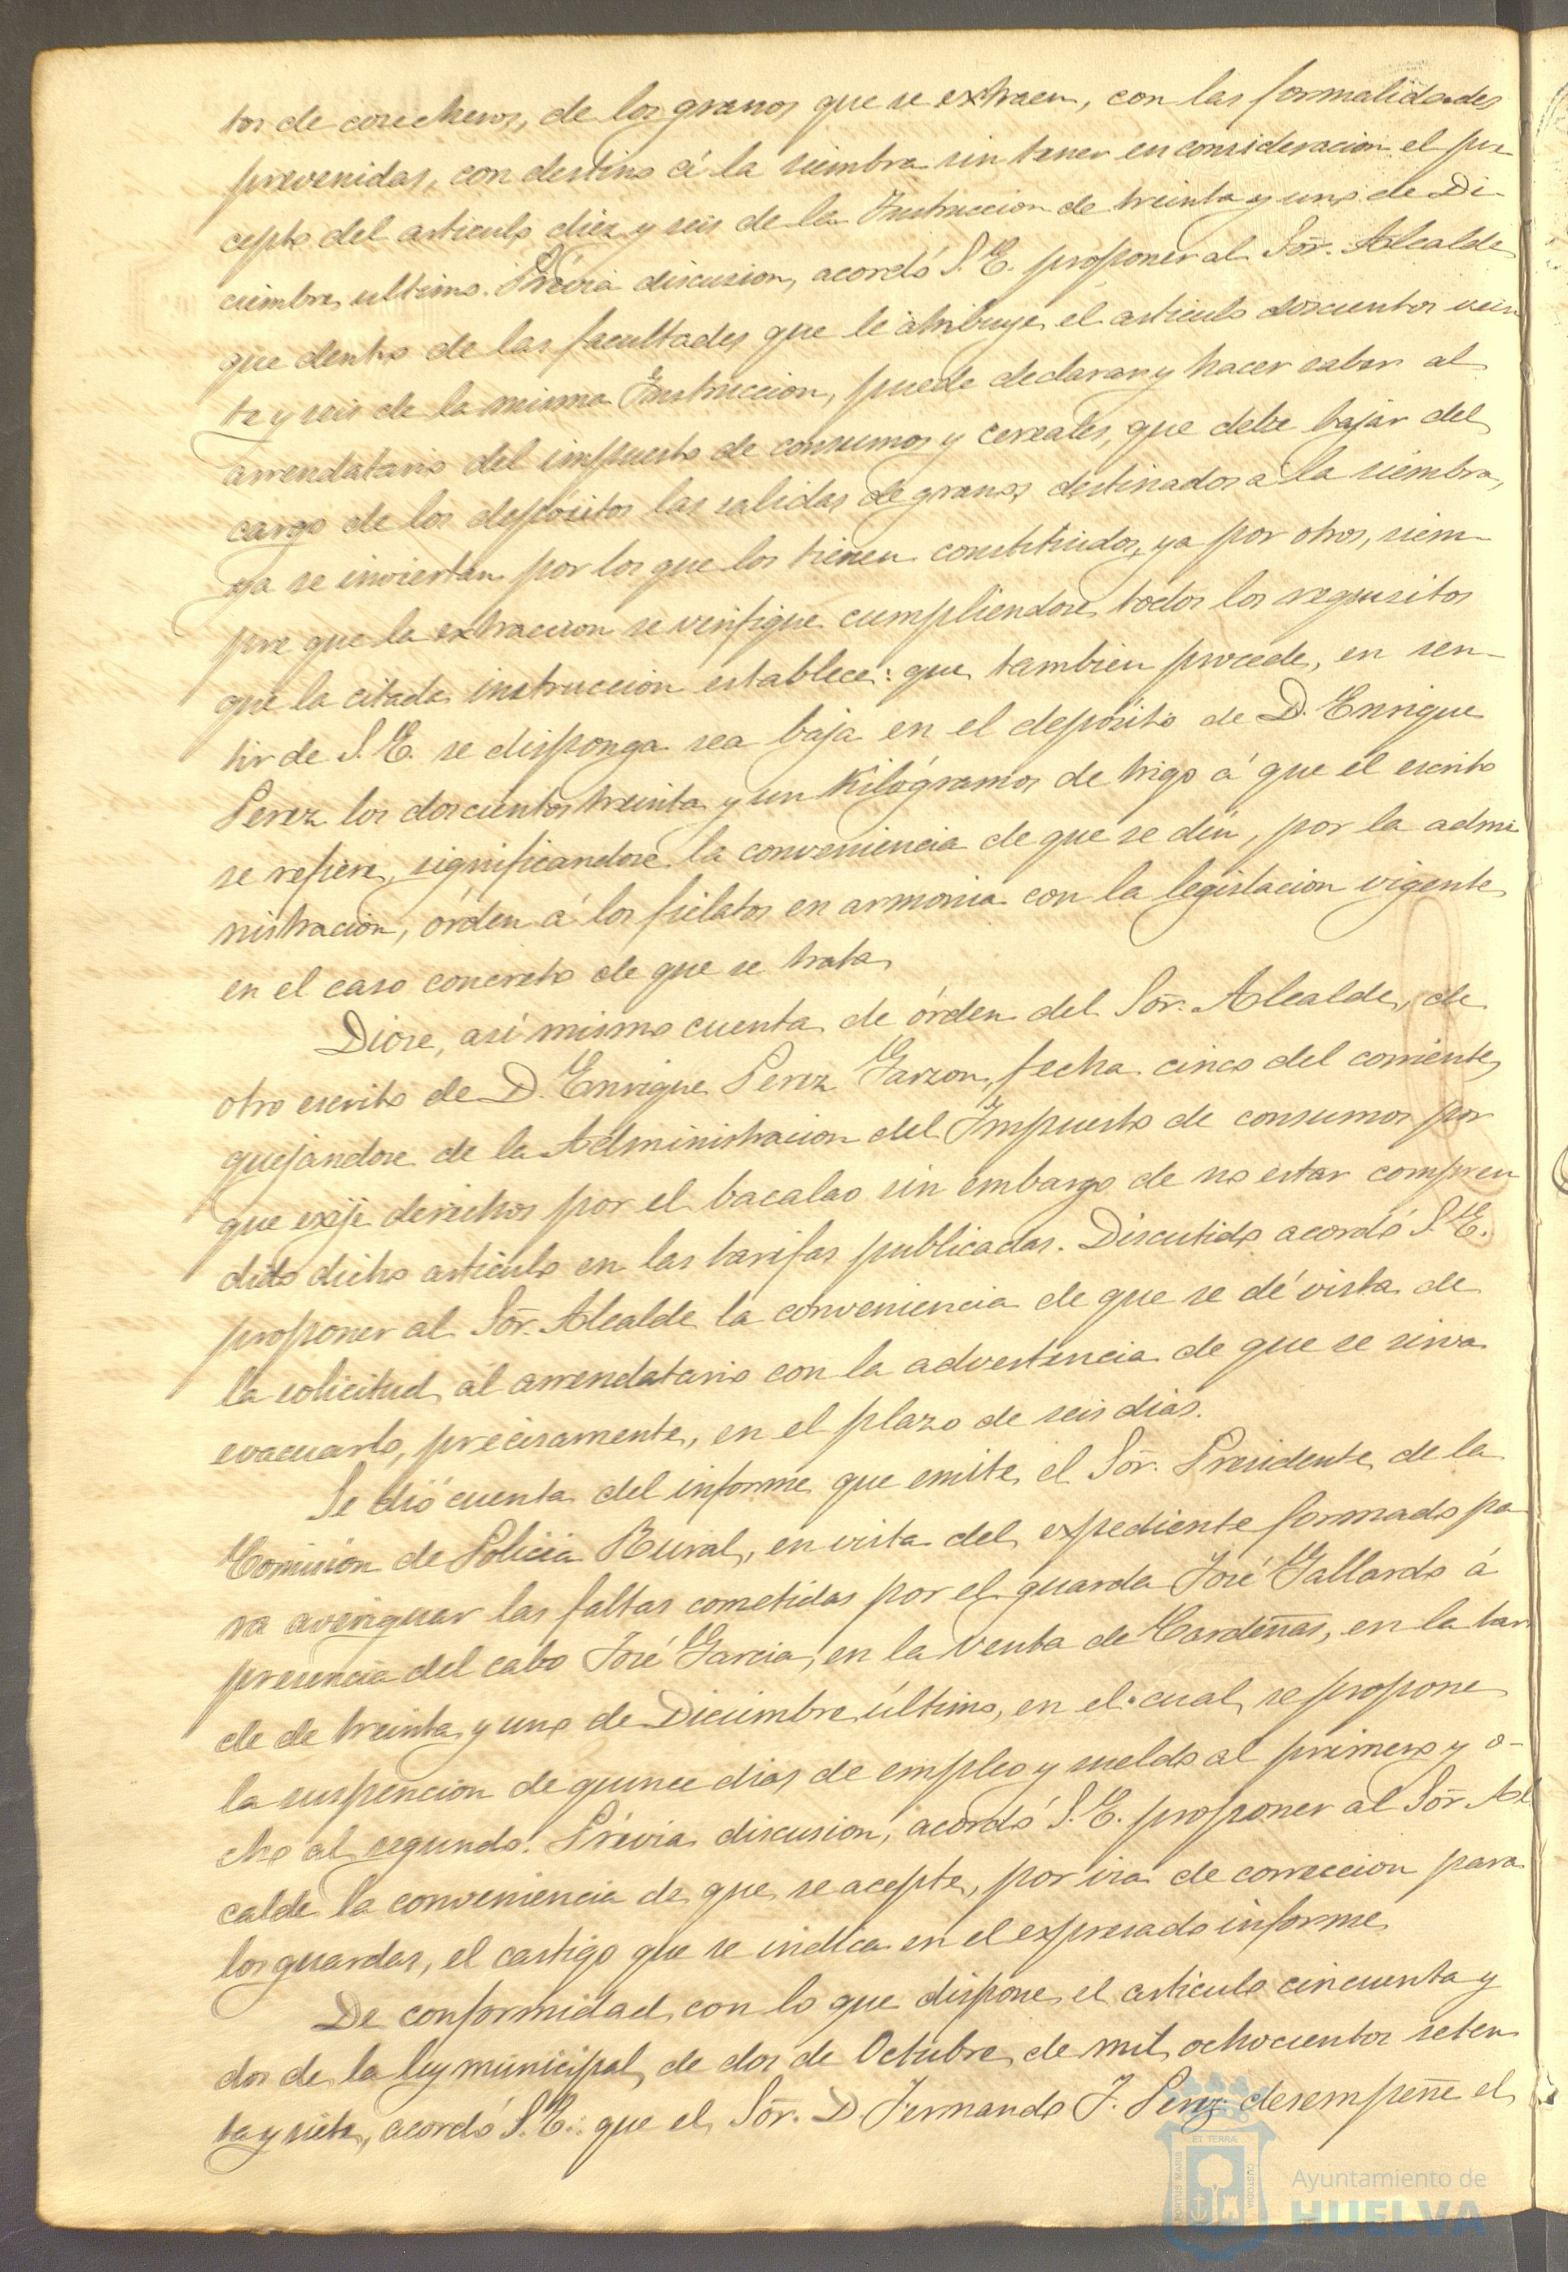 tos de cosecheros, de los granos que se extraen, con las formalidades
prevenidas, con destino á la siembra sin tener en consideracion el pre-
cepto del articulo diez y seis de la Instruccion de treinta y uno de Di-
ciembre último. Prévia discusion, acordó S. E. proponer al Sor. Alcalde
que dentro de las facultades que le atribuye el articulo doscientos vein
te y seis de la misma Instruccion, puede declarar y hacer saber al
arrendatario del impuesto de consumos y cereales, que debe bajar del
cargo de los depósitos las salidas de granos destinados á la siembra,
ya se inviertan por los que los tienen constituidos, ya por otros, siem-
pre que la extraccion se verifique cumpliendose todos los requisitos
que la citada instruccion establece: que tambien procede, en sen-
tir de S. E. se disponga sea baja en el depósito de D. Enrique
Perez los doscientos treinta y un Kilógramos de trigo á que el escrito
se refiere, significandose la conveniencia de que se dén, por la admi
nistracion, órden á los fielatos en armonia con la legislacion vigente
en el caso concreto de que se trata
Diose, asi mismo cuenta de órden del Sor. Alcalde, de
otro escrito de D. Enrique Perez Garzon, fecha cinco del corriente
quejandose de la Administracion del Impuesto de consumos por
que exije derechos por el bacalao sin embargo de no estar compren
dido dicho articulo en las tarifas publicadas. Discutido acordó S. E.
proponer al Sor. Alcalde la conveniencia de que se dé vista de
la solicitud al arrendatario con la advertencia de que se sirva
evacuarlo, precisamente, en el plazo de seis dias.
Se dió cuenta del informe que emite el Sor. Presidente de la
Comision de Policia Rural, en vista del expediente formado pa
ra averiguar las faltas cometidas por el guarda José Gallardo á
presencia del cabo José Garcia, en la Venta de Cardeñas, en la tar
de de treinta y uno de Diciembre último, en el cual se propone
la suspencion de quince dias de empleo y sueldo al primero y o-
cho al segundo. Prévia discusion, acordó S. E. proponer al Sor. Al
calde la conveniencia de que se acepte, por via de correccion para
los guardas, el castigo que se indica en el expresado informe
De conformidad con lo que dispone el articulo cincuenta y
dos de la ley municipal de dos de Octubre de mil ochocientos seten
ta y siete, acordó S. E.: que el Sor. D. Fernando J. Perez desempeñe el
PORTUS MARIS ET TERRÆ CUSTODIA
Ayuntamiento de
HUELVA